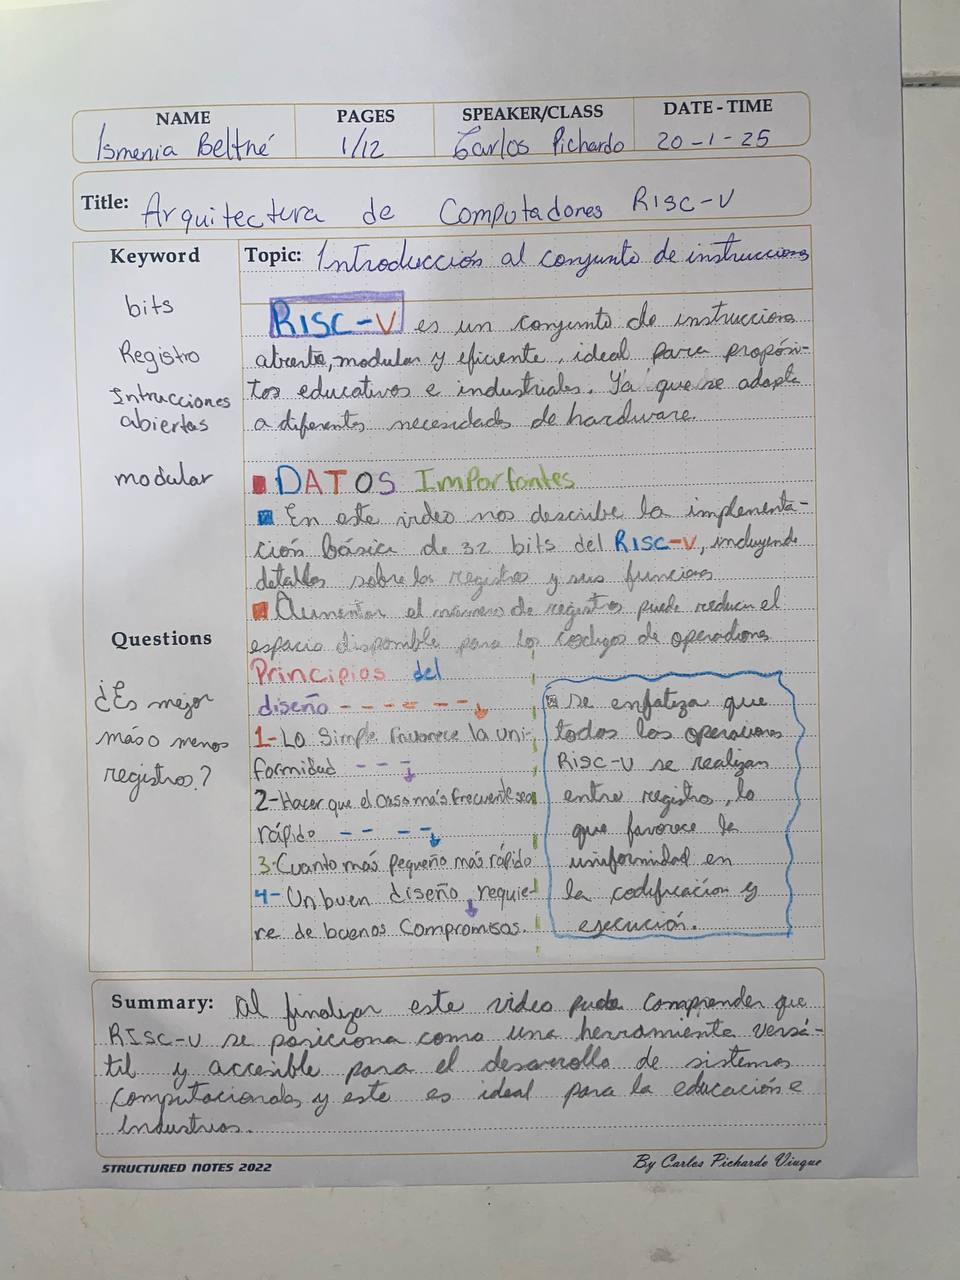 NAME PAGES SPEAKER/CLASS DATE - TIME
Ismenia Beltré 1/12 Carlos Pichardo 20-1-25
Title: Arquitectura de Computadores RISC-V
Keyword
bits
Registro
Intrucciones
abiertas
modular
Questions
¿Es mejor
más o menos
registros?
Topic: Introducción al conjunto de instrucciones
RISC-V es un conjunto de instrucciones
abierto, modular y eficiente, ideal para propósi-
tos educativos e industriales. Ya que se adapta
a diferentes necesidades de hardware.
DATOS Importantes
En este video nos describe la implementa-
ción básica de 32 bits del RISC-V, incluyendo
detalles sobre los registros y sus funciones
Aumentar el número de registros puede reducir el
espacio disponible para los codigos de operaciones
Principios del
diseño
1-Lo simple favorece la uni-
formidad
2-Hacer que el caso más frecuente sea
rápido
3-Cuanto más pequeño más rápido
4-Un buen diseño requie-
re de buenos compromisos.
se enfatiza que
todas las operaciones
RISC-V se realizan
entre registro, lo
que favorece la
uniformidad en
la codificación y
ejecución.
Summary: Al finalizar este video pude comprender que
RISC-V se posiciona como una herramienta versá-
til y accesible para el desarrollo de sistemas
computacionales y este es ideal para la educación e
industrias.
STRUCTURED NOTES 2022
By Carlos Pichardo Viuque